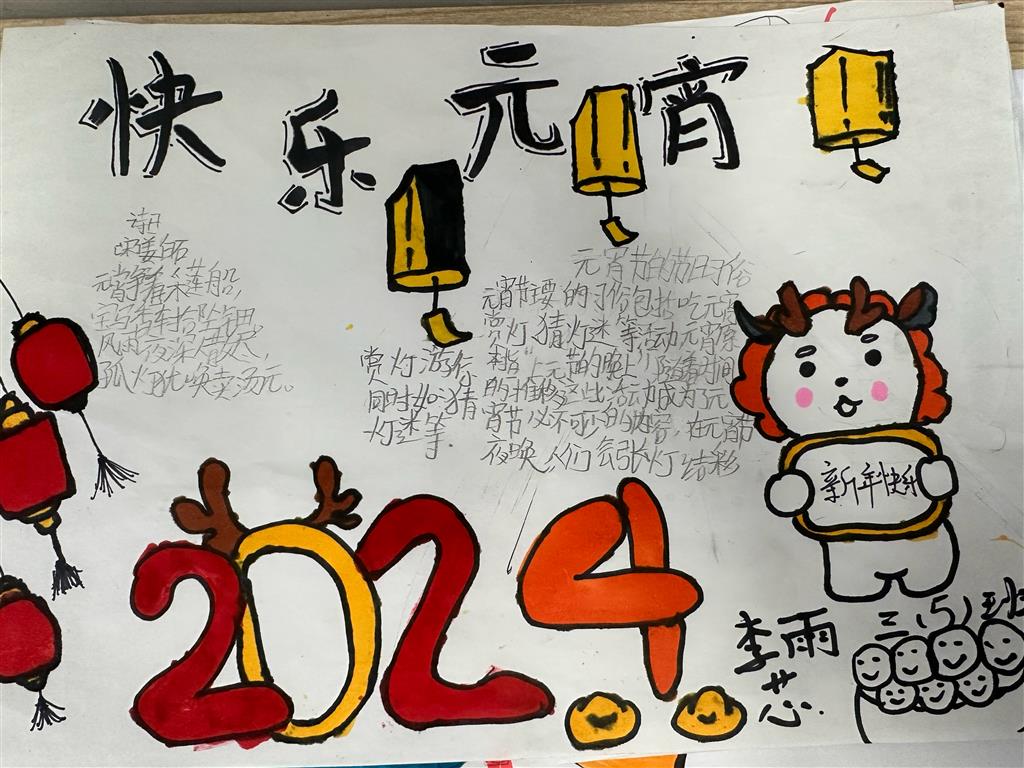 快乐元宵
诗曰
宋姜白石
元宵争看采莲船,
宝马香车拾坠钿
风雨夜深人散尽,
孤灯犹唤卖汤元。
元宵节的节日习俗
元宵节主要的习俗包括吃元宵
赏灯猜灯谜等活动元宵
"上元节的晚上"随着时间
的推移这些活动成为了元
宵节必不可少的内容,在元宵节
夜晚人们会张灯结彩
赏灯游行
同时如猜
灯谜等.
新年快乐
2024
李雨芯
三(5)班